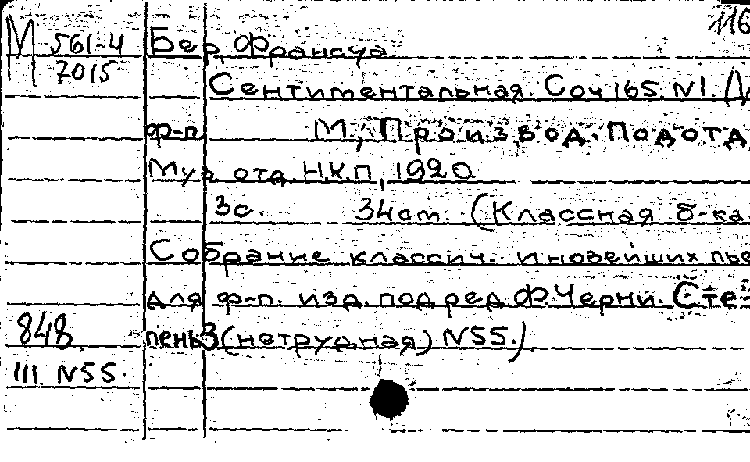 116
М 561-4 Бер, Франсуа
7015
Сентиментальная. Соч 165. N1. Д
ф-п М., Производ. Подотд
Муз отд Н.К.П, 1920
3с. 34 см. (Классная б-ка
Собрание классич. и новейших пье
для ф-п. изд. под ред Ф. Черни. Сте-
848 пень 3 (нетрудная) N55.)
III N55.